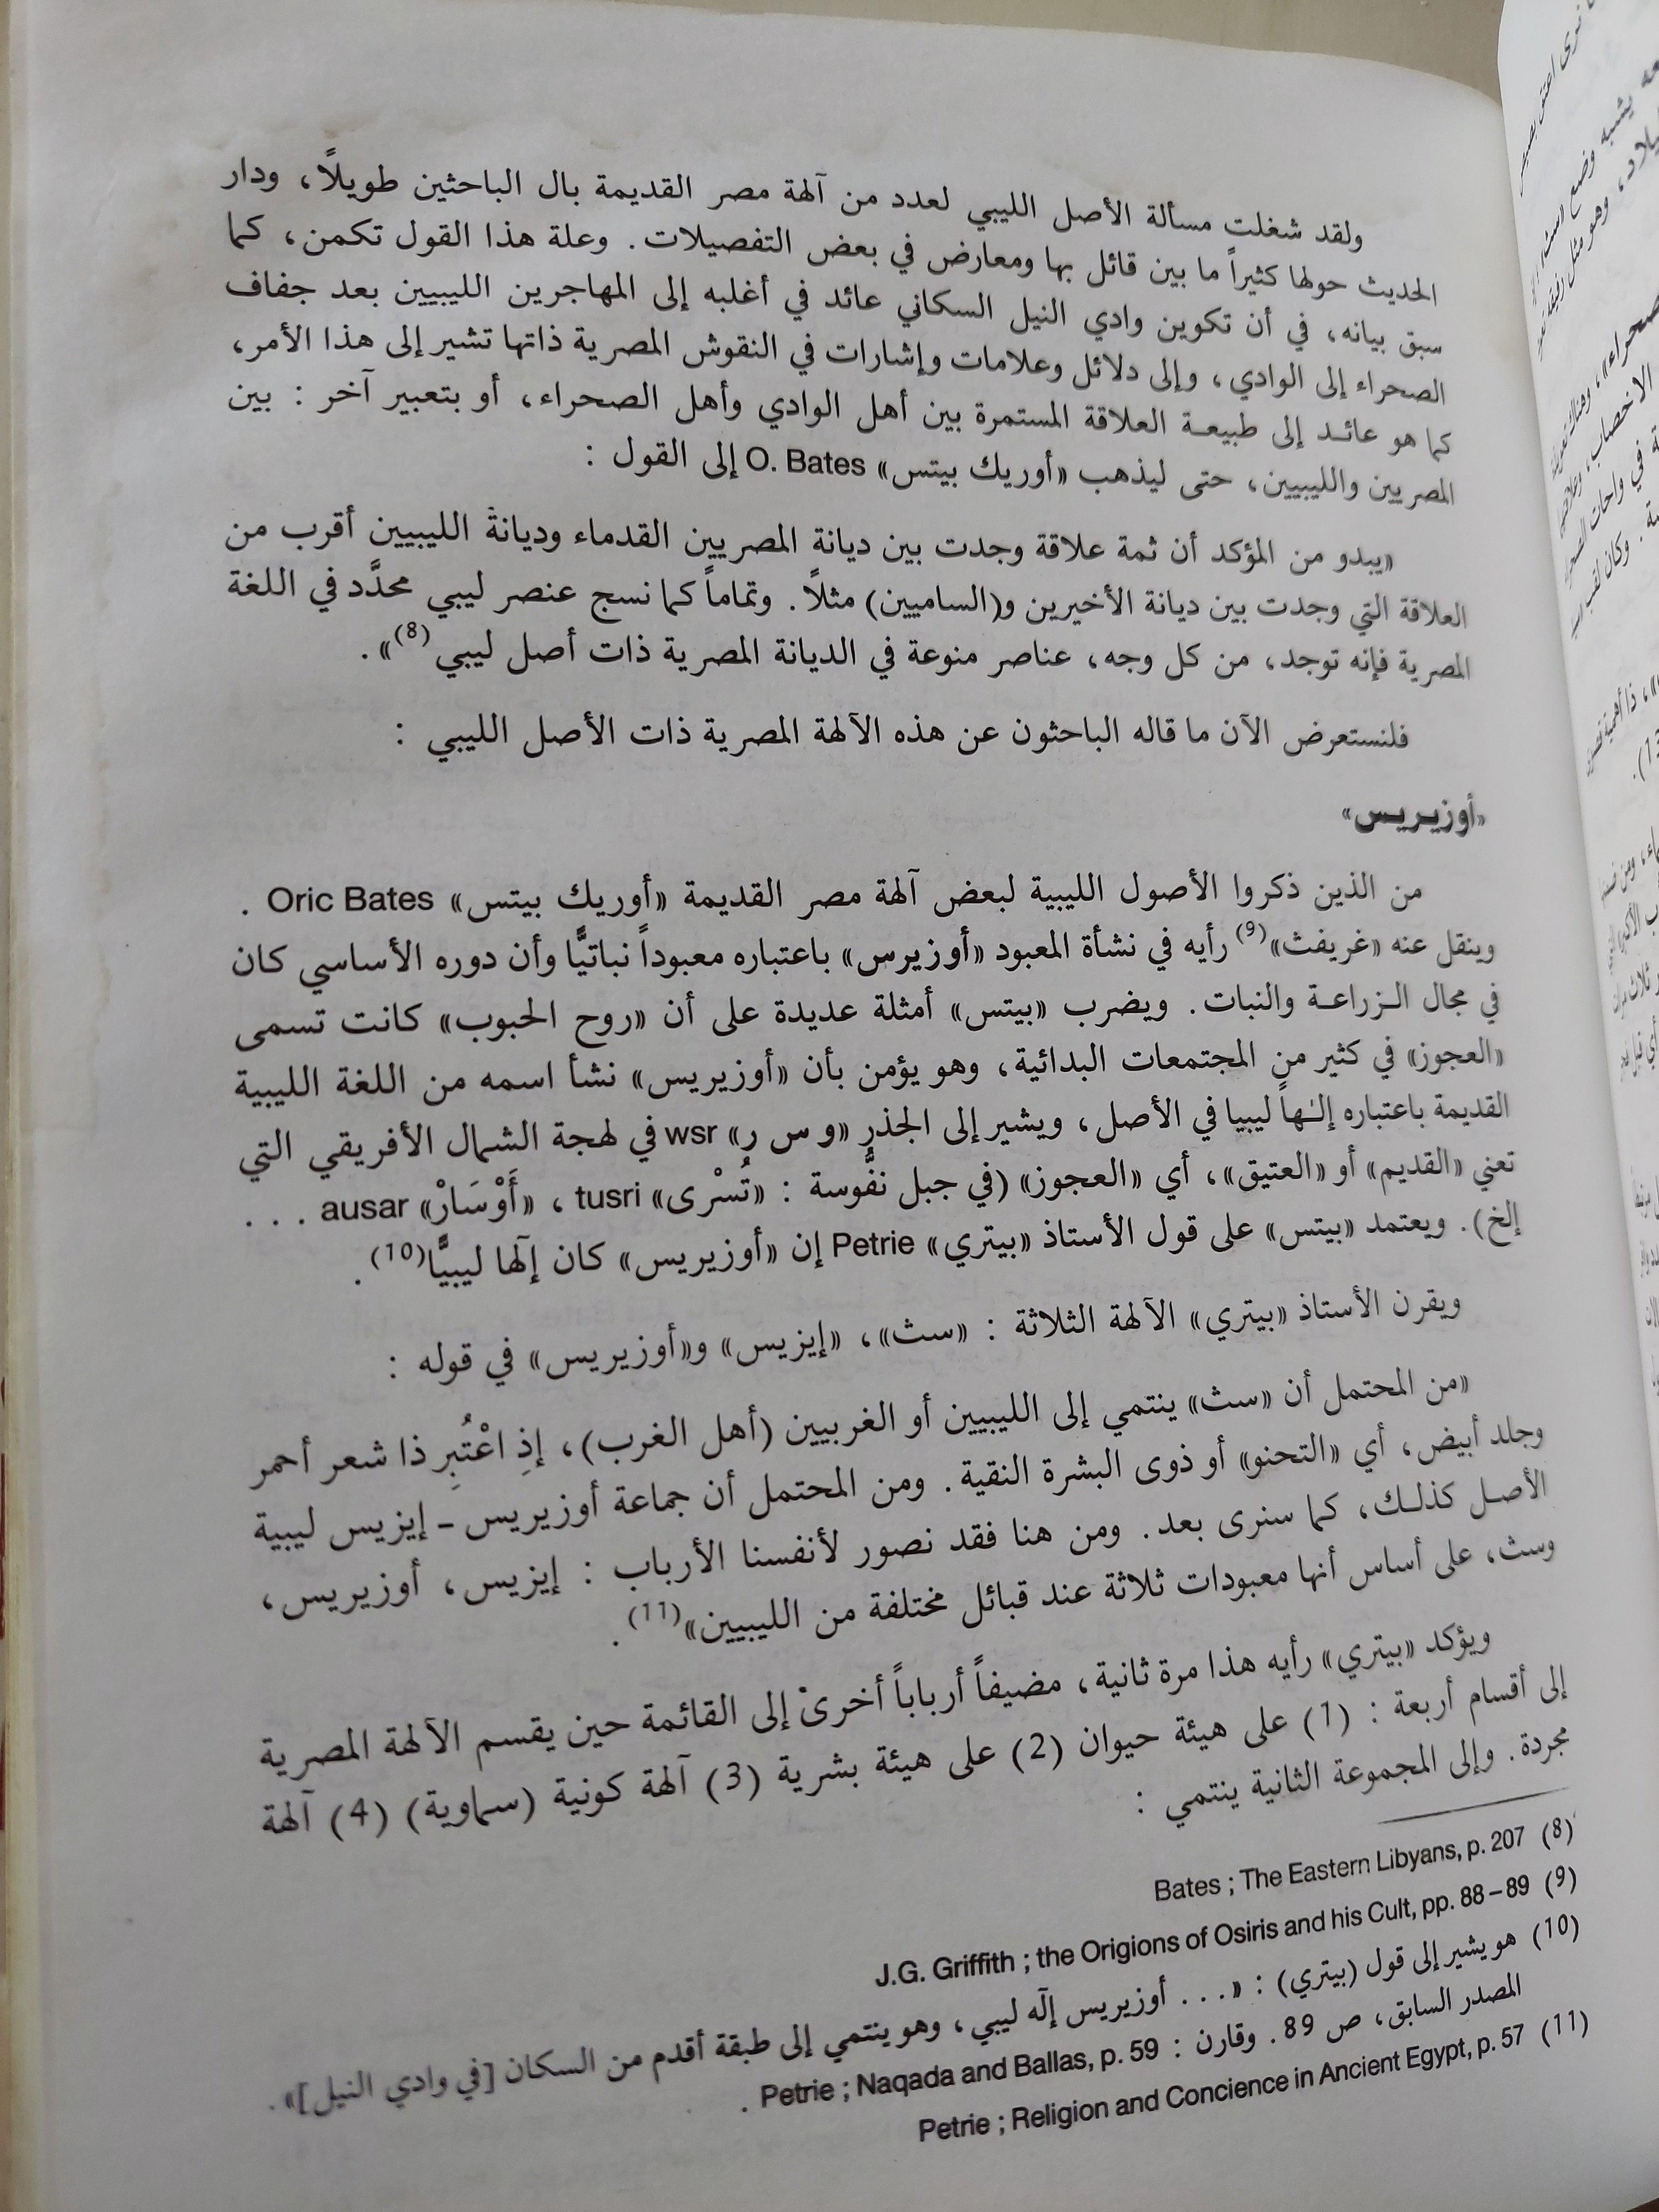 ولقد شغلت مسألة الأصل الليبي لعدد من آلهة مصر القديمة بال الباحثين طويلاً، ودار
الحديث حولها كثيراً ما بين قائل بها ومعارض في بعض التفصيلات. وعلة هذا القول تكمن، كما
سبق بيانه، في أن تكوين وادي النيل السكاني عائد في أغلبه إلى المهاجرين الليبيين بعد جفاف
الصحراء إلى الوادي، وإلى دلائل وعلامات وإشارات في النقوش المصرية ذاتها تشير إلى هذا الأمر،
كما هو عائد إلى طبيعة العلاقة المستمرة بين أهل الوادي وأهل الصحراء، أو بتعبير آخر : بين
المصريين والليبيين، حتى ليذهب «أوريك بيتس» O. Bates إلى القول :
«يبدو من المؤكد أن ثمة علاقة وجدت بين ديانة المصريين القدماء وديانة الليبيين أقرب من
العلاقة التي وجدت بين ديانة الأخيرين و(الساميين) مثلاً. وتماماً كما نسج عنصر ليبي محدَّد في اللغة
المصرية فإنه توجد، من كل وجه، عناصر منوعة في الديانة المصرية ذات أصل ليبي(8)».
فلنستعرض الآن ما قاله الباحثون عن هذه الآلهة المصرية ذات الأصل الليبي :
«أوزيريس»
من الذين ذكروا الأصول الليبية لبعض آلهة مصر القديمة «أوريك بيتس» Oric Bates .
وينقل عنه «غريفث»(9) رأيه في نشأة المعبود «أوزيرس» باعتباره معبوداً نباتيًّا وأن دوره الأساسي كان
في مجال الزراعة والنبات. ويضرب «بيتس» أمثلة عديدة على أن «روح الحبوب» كانت تسمى
«العجوز» في كثير من المجتمعات البدائية، وهو يؤمن بأن «أوزيريس» نشأ اسمه من اللغة الليبية
القديمة باعتباره إلـٰهاً ليبيا في الأصل، ويشير إلى الجذر «و س ر» wsr في لهجة الشمال الأفريقي التي
تعني «القديم» أو «العتيق»، أي «العجوز» (في جبل نفُّوسة : «تُسْرى» tusri ، «أَوْسَارْ» ausar ...
إلخ). ويعتمد «بيتس» على قول الأستاذ «بيتري» Petrie إن «أوزيريس» كان إلٓها ليبيًّا(10).
ويقرن الأستاذ «بيتري» الآلهة الثلاثة : «سث»، «إيزيس» و«أوزيريس» في قوله :
«من المحتمل أن «سث» ينتمي إلى الليبيين أو الغربيين (أهل الغرب)، إذِ اعْتُبِر ذا شعر أحمر
وجلد أبيض، أي «التحنو» أو ذوى البشرة النقية. ومن المحتمل أن جماعة أوزيريس - إيزيس ليبية
الأصل كذلك، كما سنرى بعد. ومن هنا فقد نصور لأنفسنا الأرباب : إيزيس، أوزيريس،
وسث، على أساس أنها معبودات ثلاثة عند قبائل مختلفة من الليبيين»(11).
ويؤكد «بيتري» رأيه هذا مرة ثانية، مضيفاً أرباباً أخرىْ إلى القائمة حين يقسم الآلهة المصرية
إلى أقسام أربعة : (1) على هيئة حيوان (2) على هيئة بشرية (3) آلهة كونية (سماوية) (4) آلهة
مجردة. وإلى المجموعة الثانية ينتمي :
(8) Bates ; The Eastern Libyans, p. 207
(9) J.G. Griffith ; the Origions of Osiris and his Cult, pp. 88 – 89
(10) هو يشير إلى قول (بيتري) : «... أوزيريس إلٓه ليبي، وهو ينتمي إلى طبقة أقدم من السكان [في وادي النيل]».
المصدر السابق، ص 89. وقارن : Petrie ; Naqada and Ballas, p. 59 .
(11) Petrie ; Religion and Concience in Ancient Egypt, p. 57